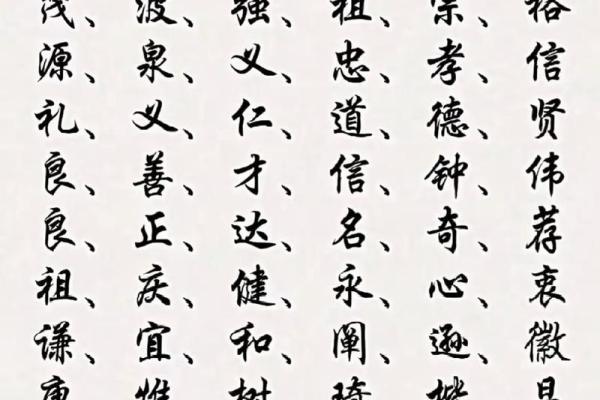 茂、波、强、祖、宗、裕
源、泉、义、忠、孝、信
礼、义、仁、道、德、贤
良、善、才、信、钟、伟
良、正、达、名、奇、荐
祖、庆、健、永、心、衷
谦、宜、和、阐、逊、徽
、惟、树、琦、楷、